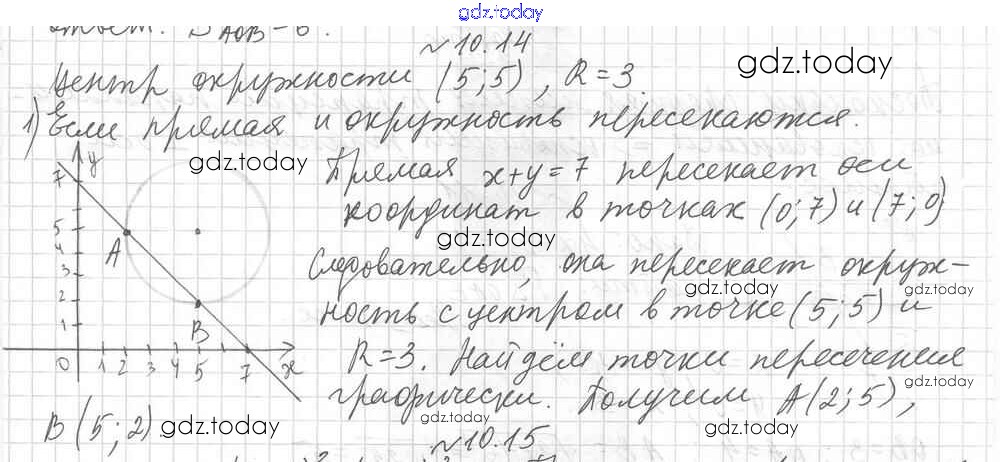 gdz.today
ответ. S AOB = 6.
~ 10.14
gdz.today
Центр окружности (5;5), R=3.
1) Если прямая и окружность пересекаются.
gdz.today
Прямая x+y=7 пересекает оси
координат в точках (0;7) и (7;0)
gdz.today
Следовательно, она пересекает окруж-
ность с центром в точке (5;5) и
gdz.today gdz.today
R=3. Найдём точки пересечения
gdz.today
графически. Получим A(2;5),
B(5;2)
gdz.today gdz.today gdz.today
~ 10.15
y
7
5
4
3
2
1
0 1 2 3 4 5 7 x
A
B